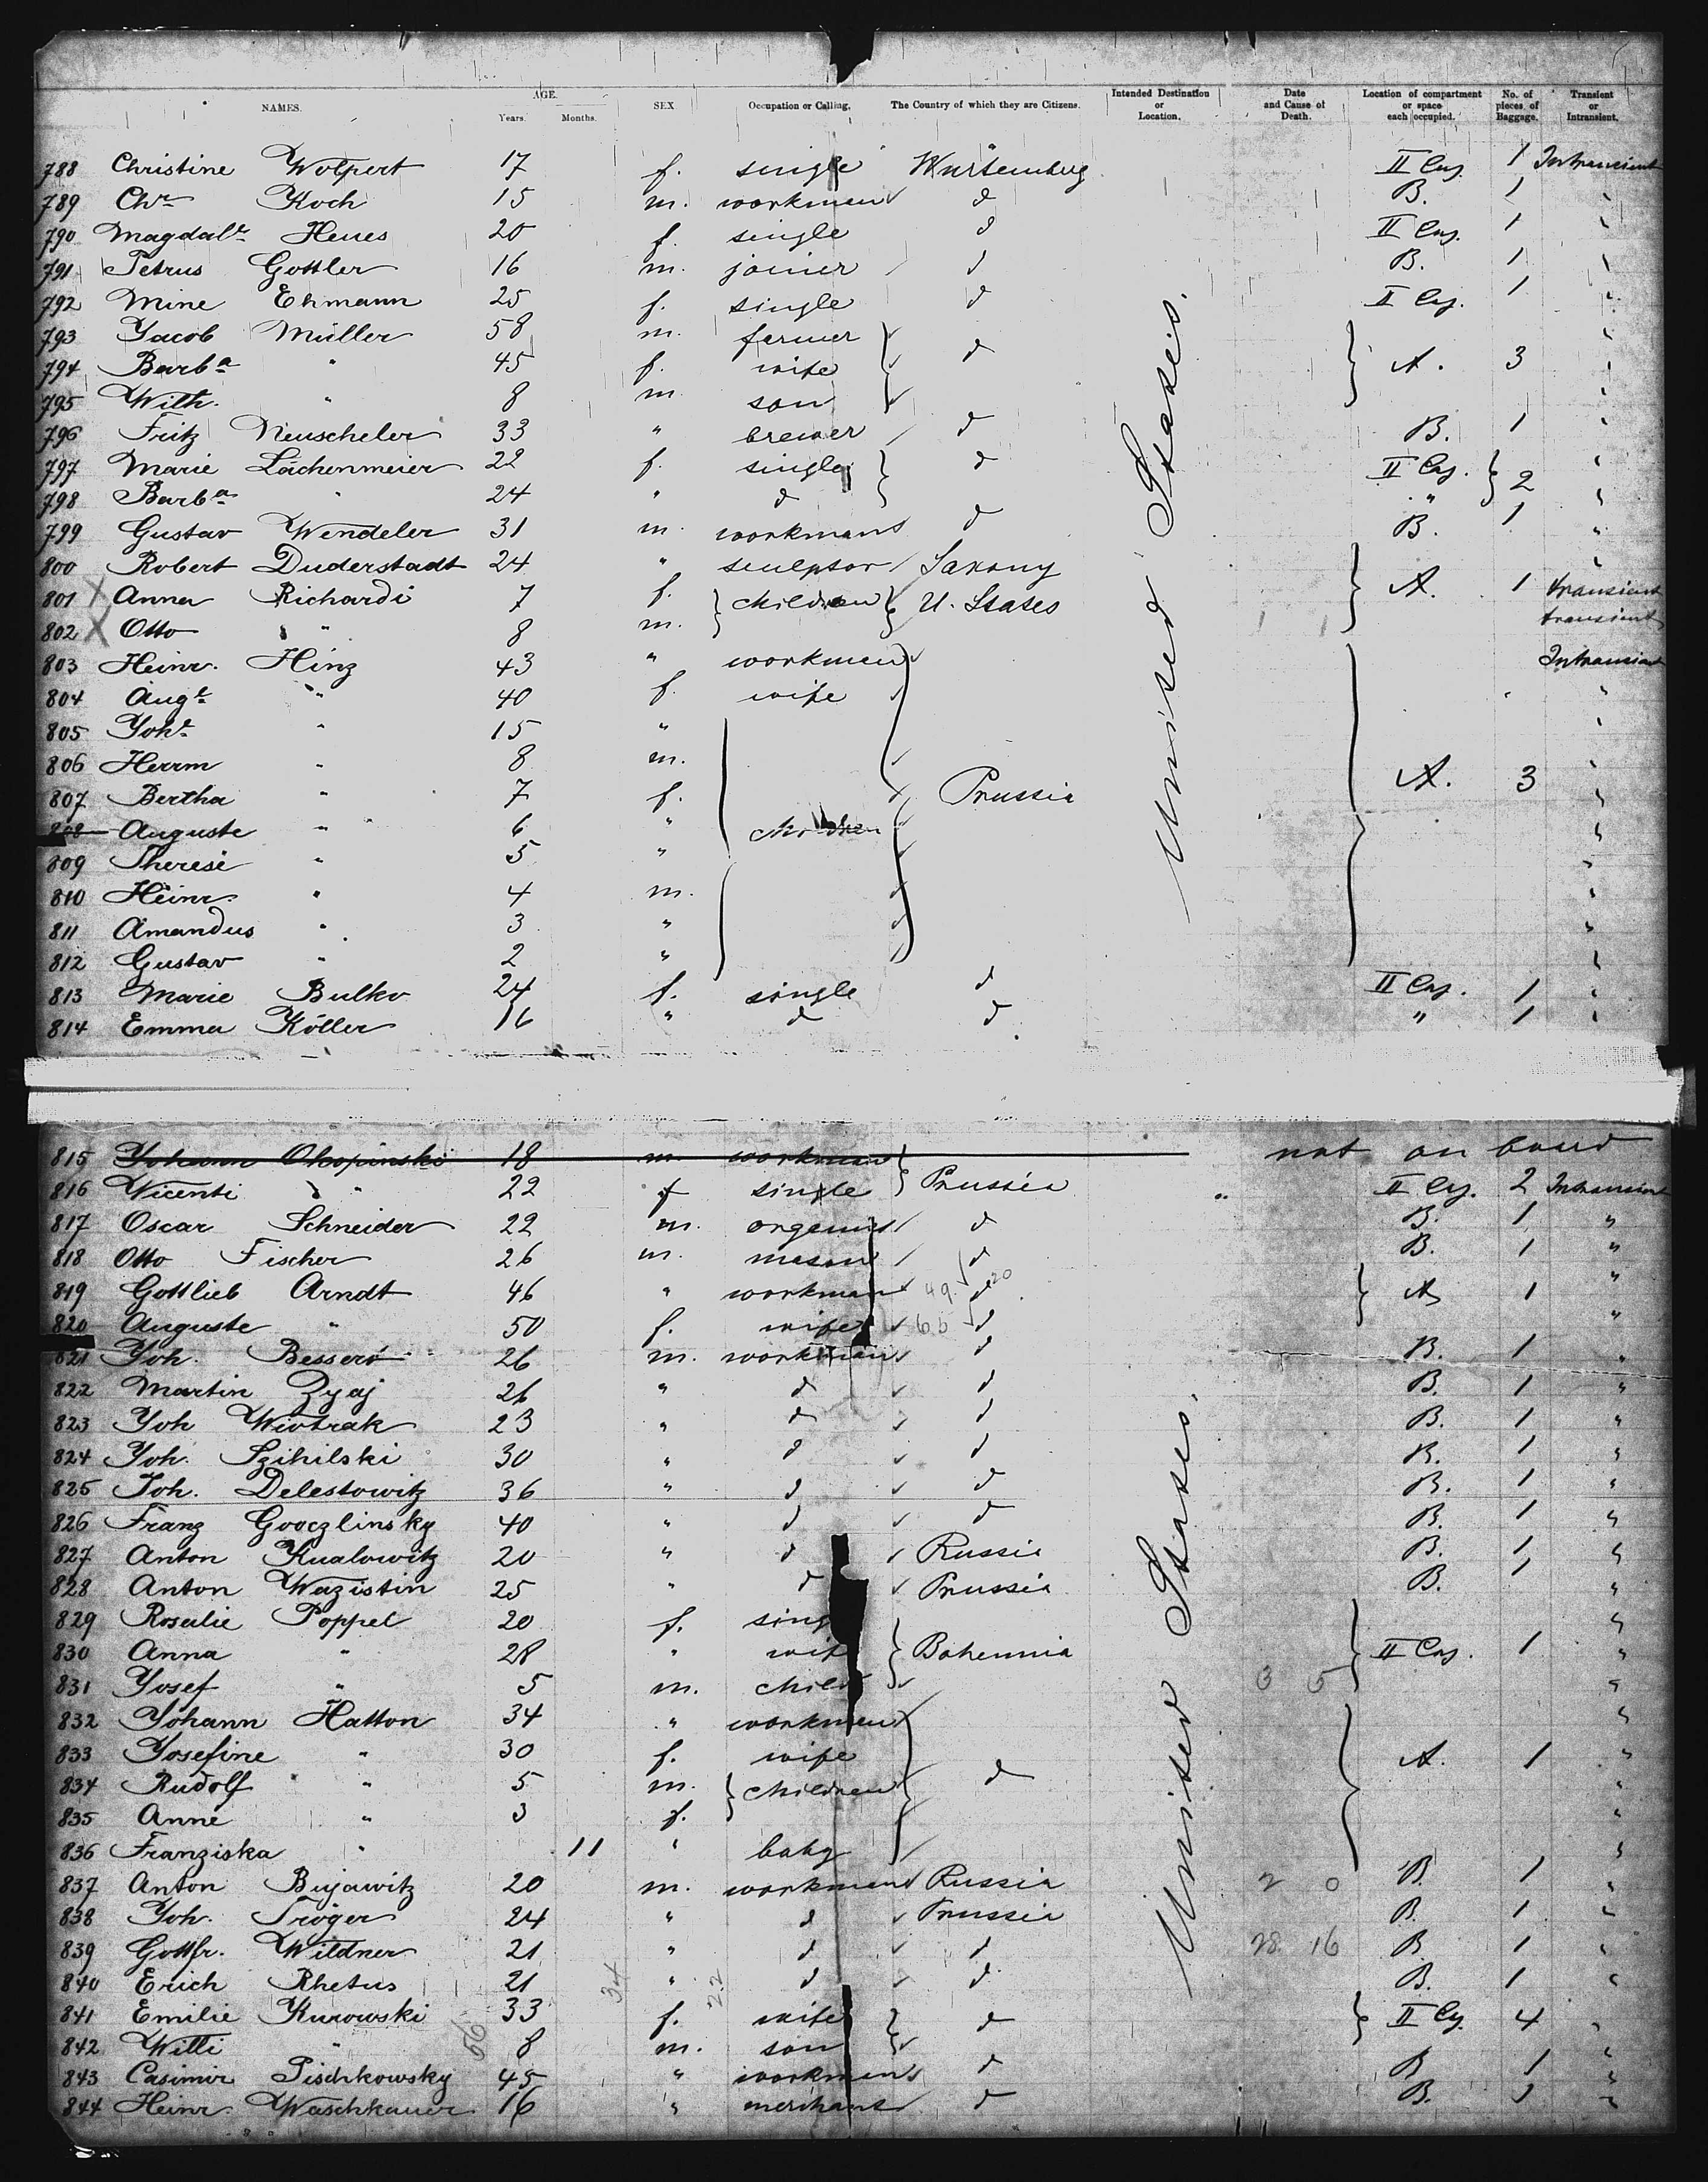 NAMES. AGE. Years. Months. SEX Occupation or Calling. The Country of which they are Citizens. Intended Destination or Location. Date and Cause of Death. Location of compartment or space each occupied. No. of pieces of Baggage. Transient or Intransient.
788 Christine Wolpert 17 f. single Würtemberg II Cag. 1 Intransient
789 Chr. Koch 15 m. workman d B. 1 "
790 Magdale. Heues 20 f. single d II Cag. 1 "
791 Petrus Gottler 16 m. joiner d B. 1 "
792 Mine Ehmann 25 f. single d II Cag. 1 "
793 Jacob Müller 58 m. farmer "
794 Barba " 45 f. wife d A. 3 "
795 Wilh. " 8 m. son "
796 Fritz Neuscheler 33 " brewer d B. 1 "
797 Marie Lächenmeier 22 f. single d II Cag. 2 "
798 Barba " 24 " d " "
799 Gustav Wendeler 31 m. workman d B. 1 "
800 Robert Duderstadt 24 " sculptor Saxony
801 X Anna Richardi 7 f. children U. States A. 1 transient
802 X Otto " 8 m. transient
803 Heinr. Hinz 43 " workman Intransient
804 Auge. " 40 f. wife "
805 Johe. " 15 " "
806 Herrm " 8 m. "
807 Bertha " 7 f. Prussia A. 3 "
808 Auguste " 6 " children "
809 Therese " 5 " "
810 Heinr. " 4 m. "
811 Amandus " 3 " "
812 Gustav " 2 " "
813 Marie Bulko 24 f. single d II Cag. 1 "
814 Emma Köller 16 " d d " 1 "
United States.
815 Johann Okopinski 18 m. workman not on board
816 Wicenti " 22 f single Prussia " II Cag. 2 Intransient
817 Oscar Schneider 22 m. organist d B. 1 "
818 Otto Fischer 26 m. mason d B. 1 "
819 Gottlieb Arndt 46 " workman d A 1 "
820 Auguste " 50 f. wife d "
821 Joh. Bessero 26 m. workman d B. 1 "
822 Martin Zyaj 26 " d d B. 1 "
823 Joh Wiotrak 23 " d d B. 1 "
824 Joh. Szihilski 30 " d d B. 1 "
825 Joh. Delestowitz 36 " d d B. 1 "
826 Franz Gooczlinsky 40 " d d B. 1 "
827 Anton Kualowitz 20 " d Russia B. 1 "
828 Anton Wazistin 25 " d Prussia B. 1 "
829 Rosalie Poppel 20 f. sing "
830 Anna " 28 " wif Bohemia II Cag. 1 "
831 Josef " 5 m. child 3 5 "
832 Johann Hatton 34 " workman "
833 Josefine " 30 f. wife d A. 1 "
834 Rudolf " 5 m. children "
835 Anne " 3 f. "
836 Franziska " 11 " baby "
837 Anton Bujawitz 20 m. workman Russia 2 0 B. 1 "
838 Joh. Tröger 24 " d Prussia B. 1 "
839 Gottfr. Wildner 21 " d d 28. 16 B 1 "
840 Erich Rhetus 21 " d d B. 1 "
841 Emilie Kurowski 33 f. wife d II Cag. 4 "
842 Willi " 8 m. son "
843 Casimir Pischkowsky 45 " workman d B 1 "
844 Heinr. Waschkauer 16 " merchant d B. 1 "
United States.
56 34 22